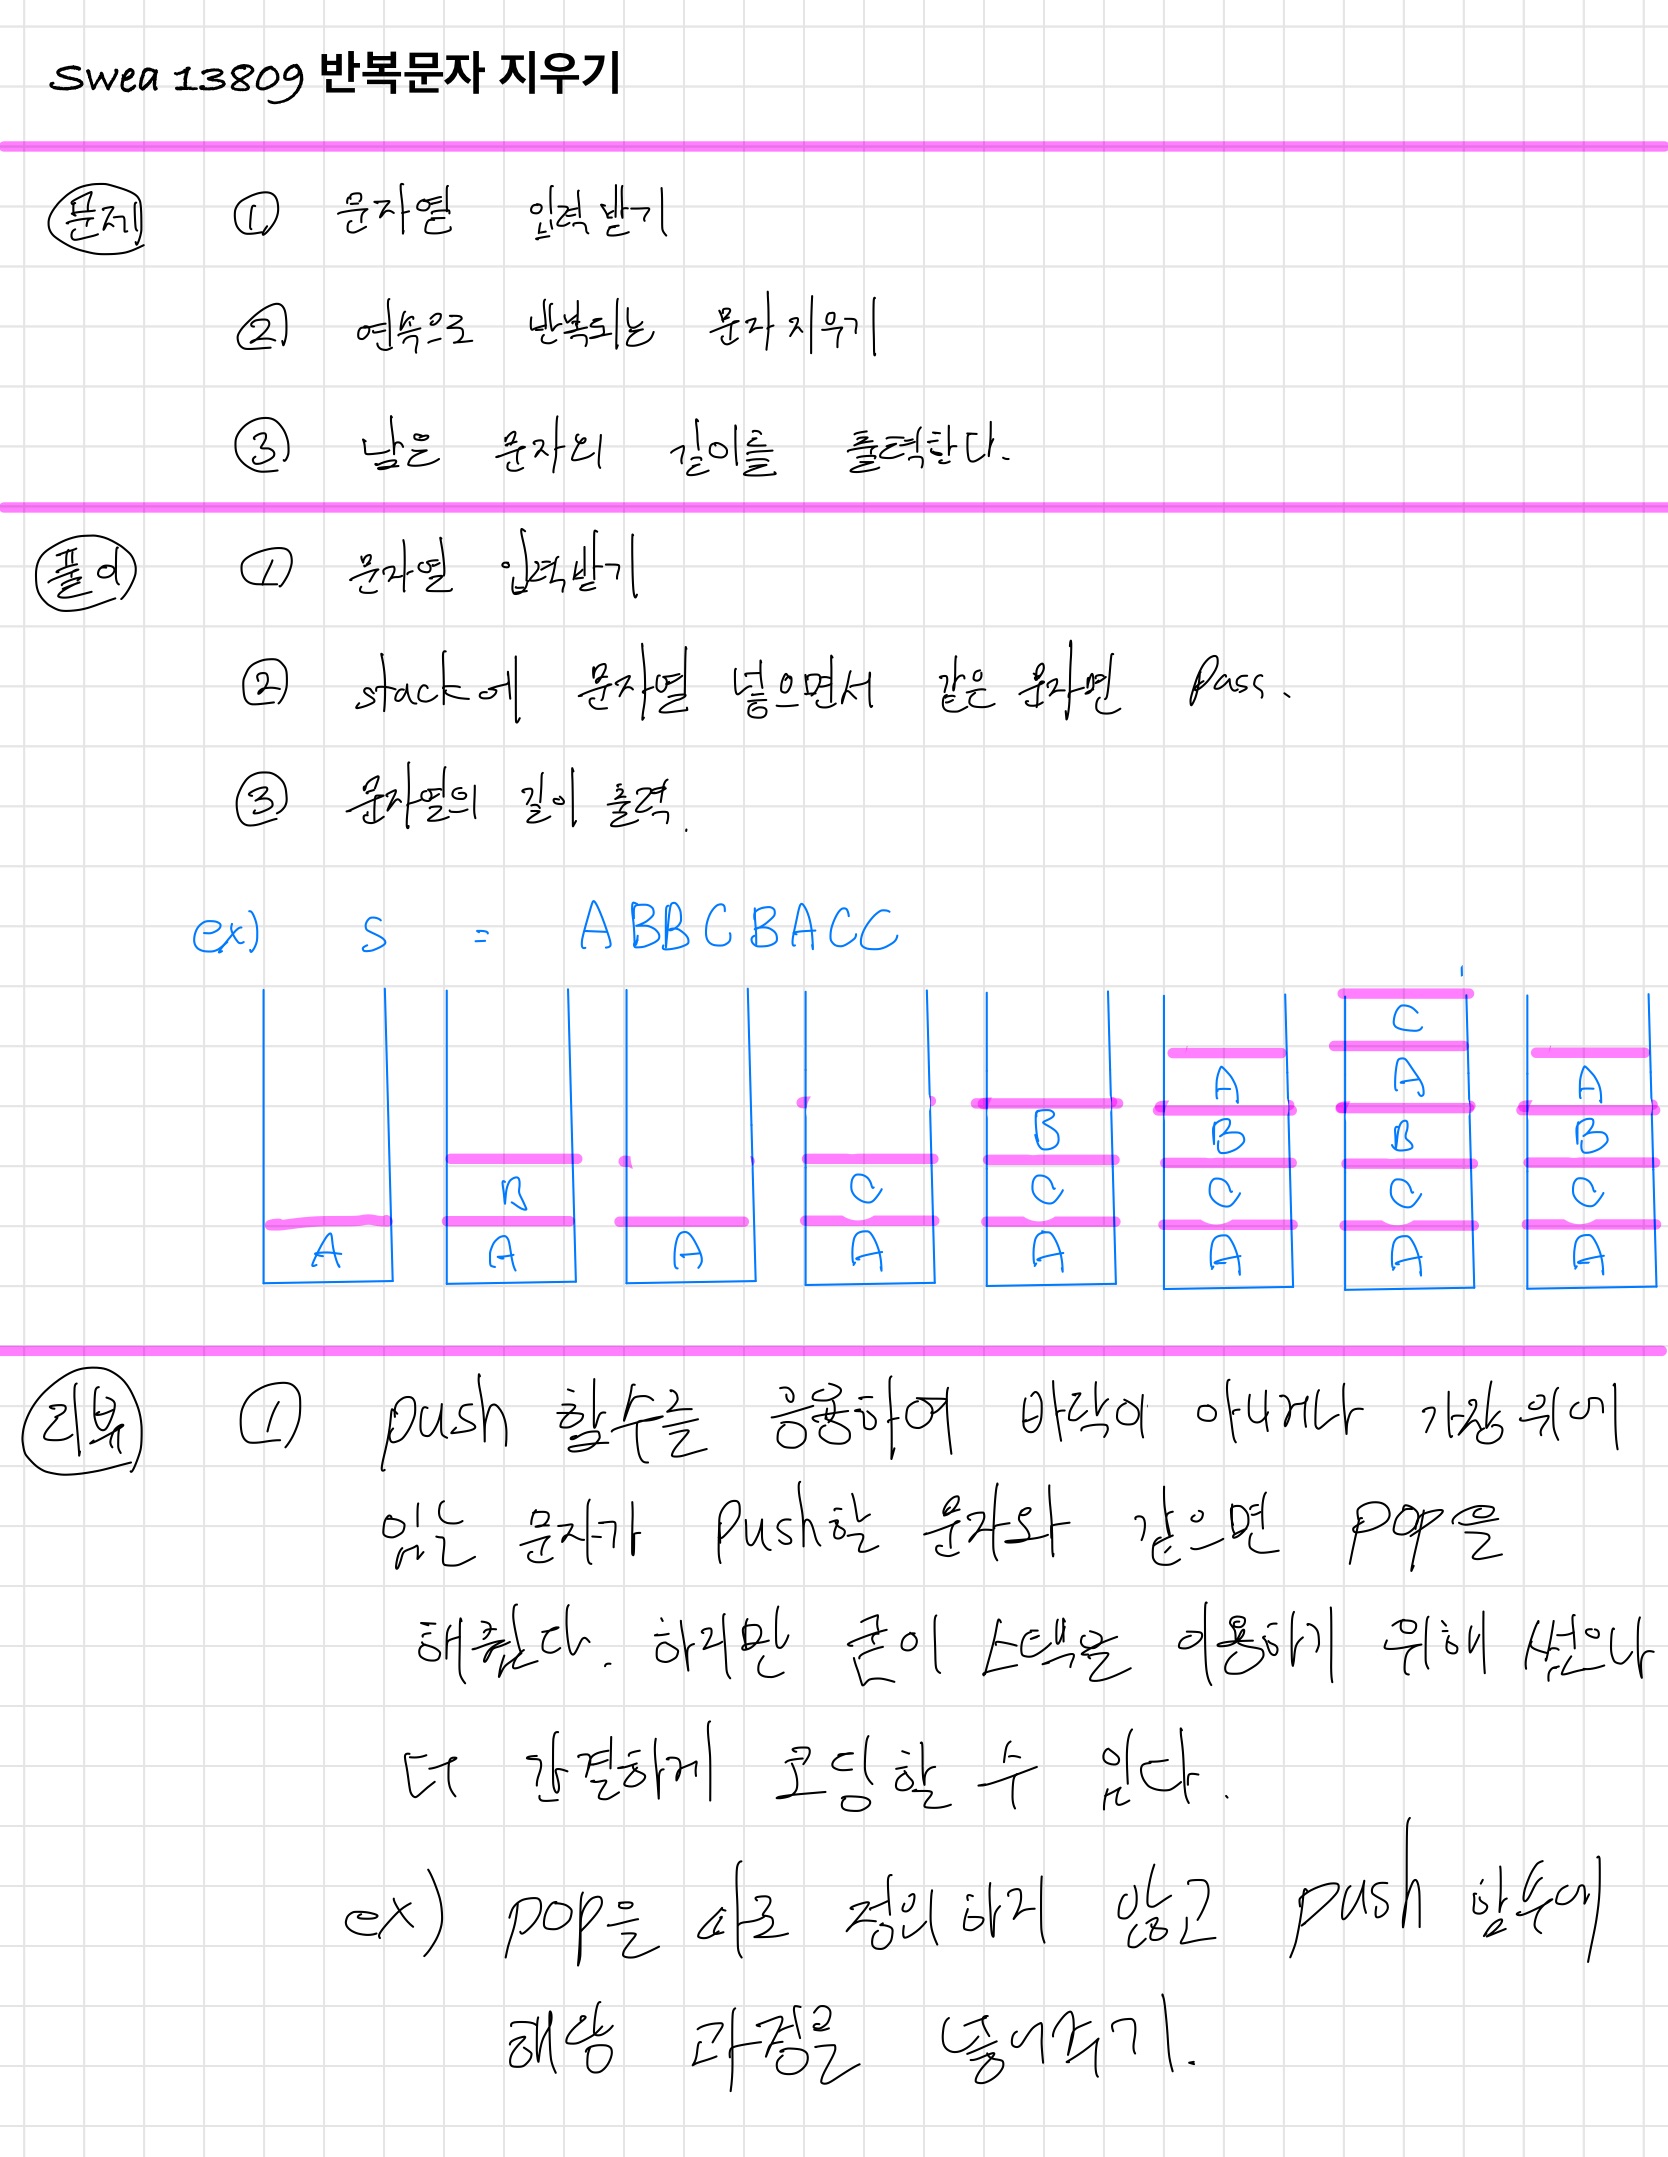 Swea 13809 반복문자 지우기
문제 ① 문자열 입력 받기
② 연속으로 반복되는 문자 지우기
③ 남은 문자의 길이를 출력한다.
풀이 ① 문자열 입력받기
② stack에 문자열 넣으면서 같은 문자면 Pass.
③ 문자열의 길이 출력.
ex) S = ABBCBACC
C
A A A
B B B B
B C C C C C
A A A A A A A A
리뷰 ① push 함수를 응용하여 바닥이 아니거나 가장 위에
있는 문자가 Push할 문자와 같으면 POP을
해줬다. 하지만 굳이 스택을 이용하기 위해 썼으나
더 간결하게 코딩할 수 있다.
ex) POP을 따로 정의하지 않고 push 함수에
해당 과정을 넣어주기.